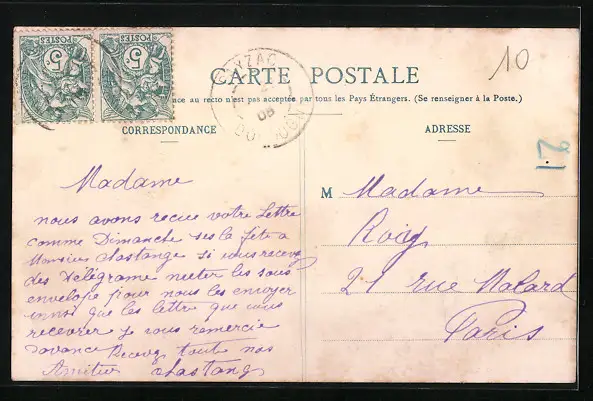 5
POSTES
5
POSTES
CARTE POSTALE
10
au recto n'est pas acceptée par tous les Pays Étrangers. (Se renseigner à la Poste.)
CORRESPONDANCE
ADRESSE
21
08
Madame
nous avons recue votre lettre
comme Dimanche ses la fête a
Monsieur chastange si vous recevez
des télégrame meter les sous
envelope pour nous les envoyer
innsi que les lettre que vous
recevrer je vous remercie
davance Recevez tout nos
Amitier chastang
M Madame
Rocq
21 rue
Paris